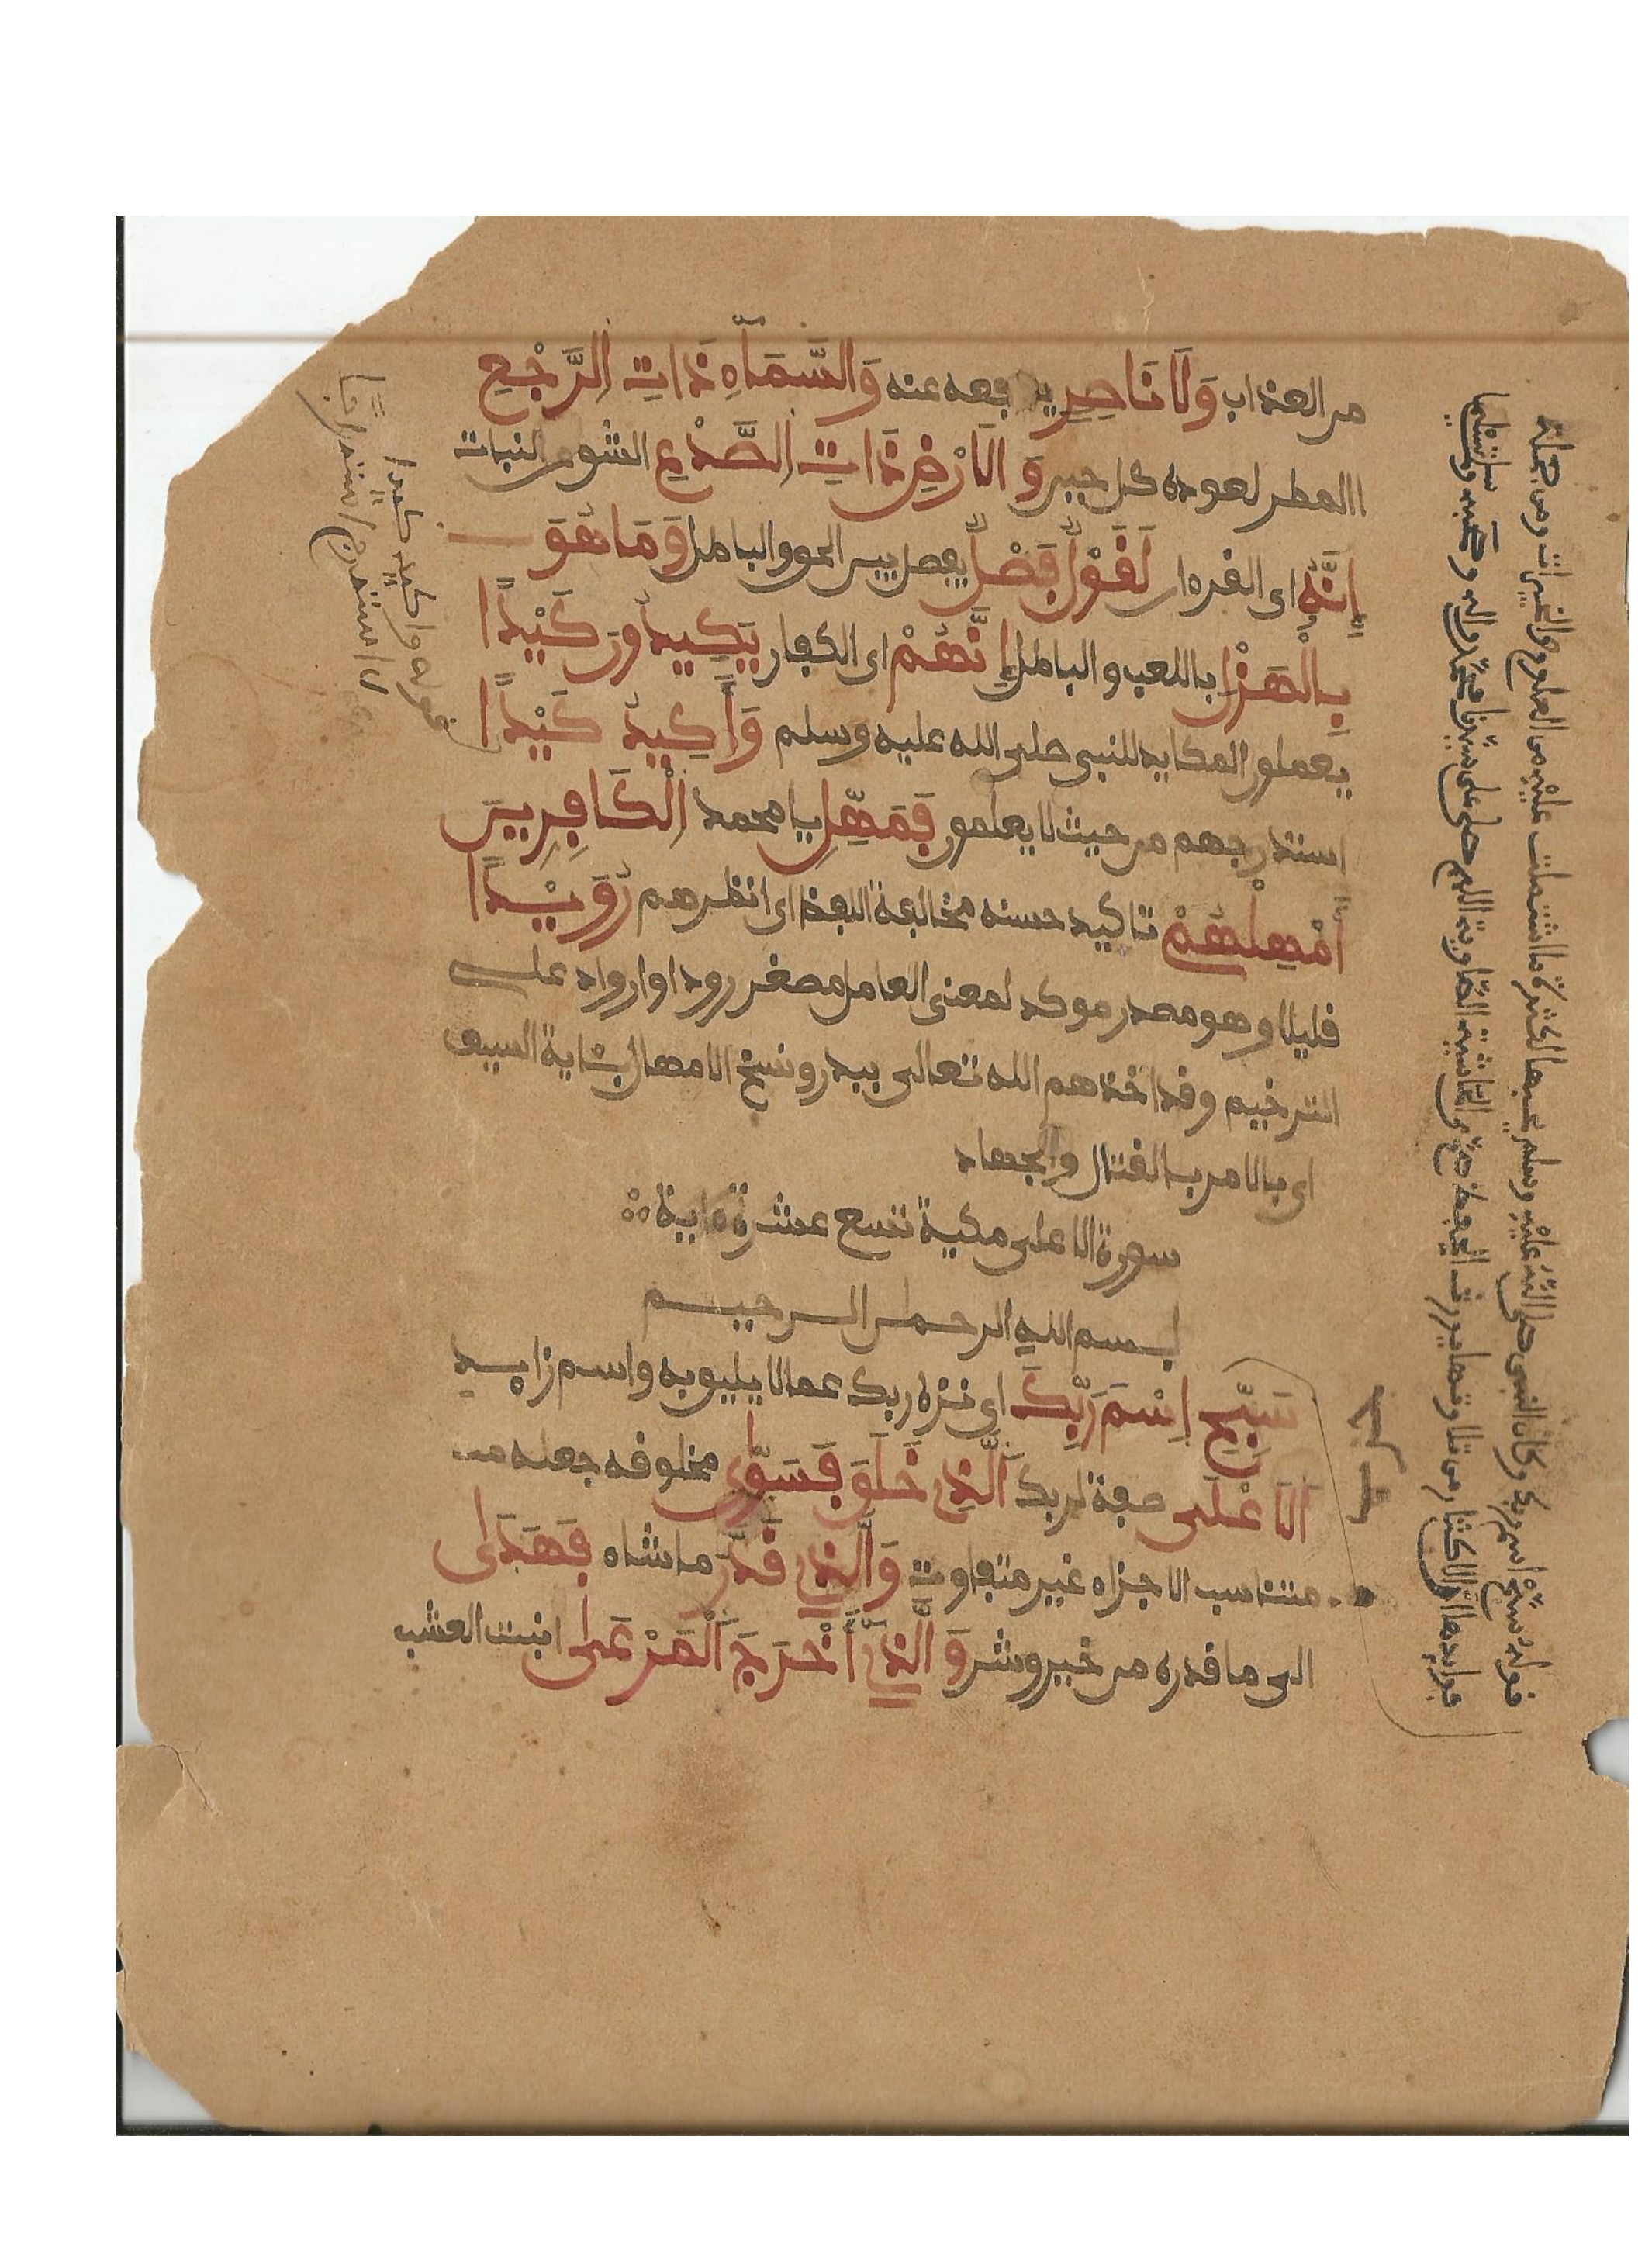 من العذاب وَلَا نَاصِرٍ يدفعه عنه وَالسَّمَآءِ ذَاتِ الرَّجْعِ
المطر لعوده كل حين وَالَارْضِ ذَاتِ الصَّدْعِ الشق عن النبات
إِنَّهُ اي القرءان لَقَوْلٌ فَصْلٌ يفصل بين الحق والباطل وَمَا هُوَ
بِالْهَزْلِ باللعب والباطل إِنَّهُمْ اي الكفار يَكِيدُونَ كَيْدًا
يعملون المكايد للنبي صلى الله عليه وسلم وَأَكِيدُ كَيْدًا
استدرجهم من حيث لا يعلمون فَمَهِّلِ يا محمد الْكَافِرِينَ
أَمْهِلْهُمْ تاكيد حسنه مخالفة اللفظ اي انظرهم رُوَيْدًا
قليلا وهو مصدر موكد لمعنى العامل مصغر رود او ارواد على
الترخيم وقد اخذهم الله تعالى ببدر ونسخ الامهال بئاية السيف
اي بالامر بالقتال والجهاد
سورة الاعلى مكية تسع عشرة ءاية
بسم الله الرحمن الرحيم
سَبِّحِ اِسْمَ رَبِّكَ اي نزه ربك عما لا يليق به واسم زايد
الَاعْلَى صفة لربك الَّذِي خَلَقَ فَسَوَّى مخلوقه جعله
متناسب الاجزاء غير متفاوت وَالَّذِي قَدَّرَ ما شاء فَهَدَى
الى ما قدره من خير وشر وَالَّذِي أَخْرَجَ الْمَرْعَى انبت العشب
قوله سبح اسم ربك وكان النبي صلى الله عليه وسلم يحبها لكثرة ما اشتملت عليه من العلوم والخيرات ومن جملة
قوله واكيد كيدا